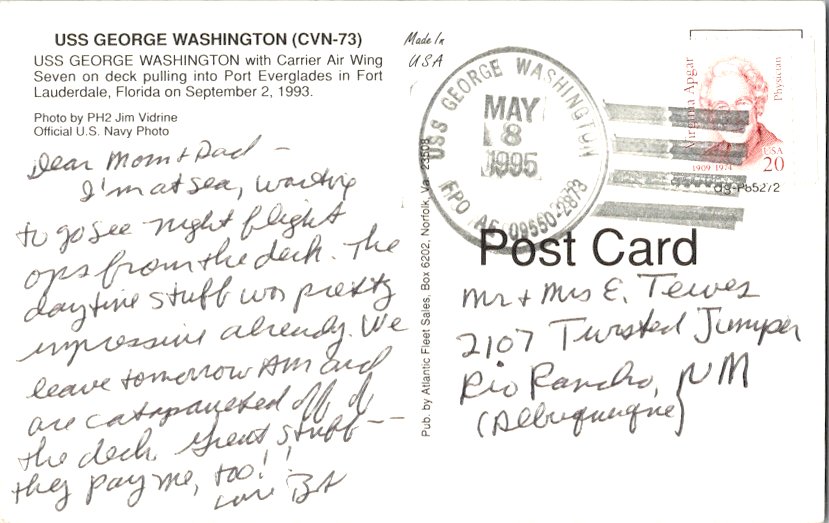 USS GEORGE WASHINGTON (CVN-73)
USS GEORGE WASHINGTON with Carrier Air Wing
Seven on deck pulling into Port Everglades in Fort
Lauderdale, Florida on September 2, 1993.
Photo by PH2 Jim Vidrine
Official U.S. Navy Photo
Dear Mom + Dad -
I'm at sea, waiting
to go see night flight
ops from the deck. The
daytime stuff was pretty
impressive already. We
leave tomorrow AM and
are catapaulted off of
the deck. Great stuff --
they pay me, too!!
Love
Made In
USA
Pub. by Atlantic Fleet Sales, Box 6202, Norfolk, Va. 23508
USS GEORGE WASHINGTON
MAY
8
1995
FPO AE 09550-2873
Virginia Apgar
Physician
1909 1974
USA
20
Post Card
Mr + Mrs E. Tewes
2107 Twisted Juniper
Rio Rancho, NM
(Albuquerque)